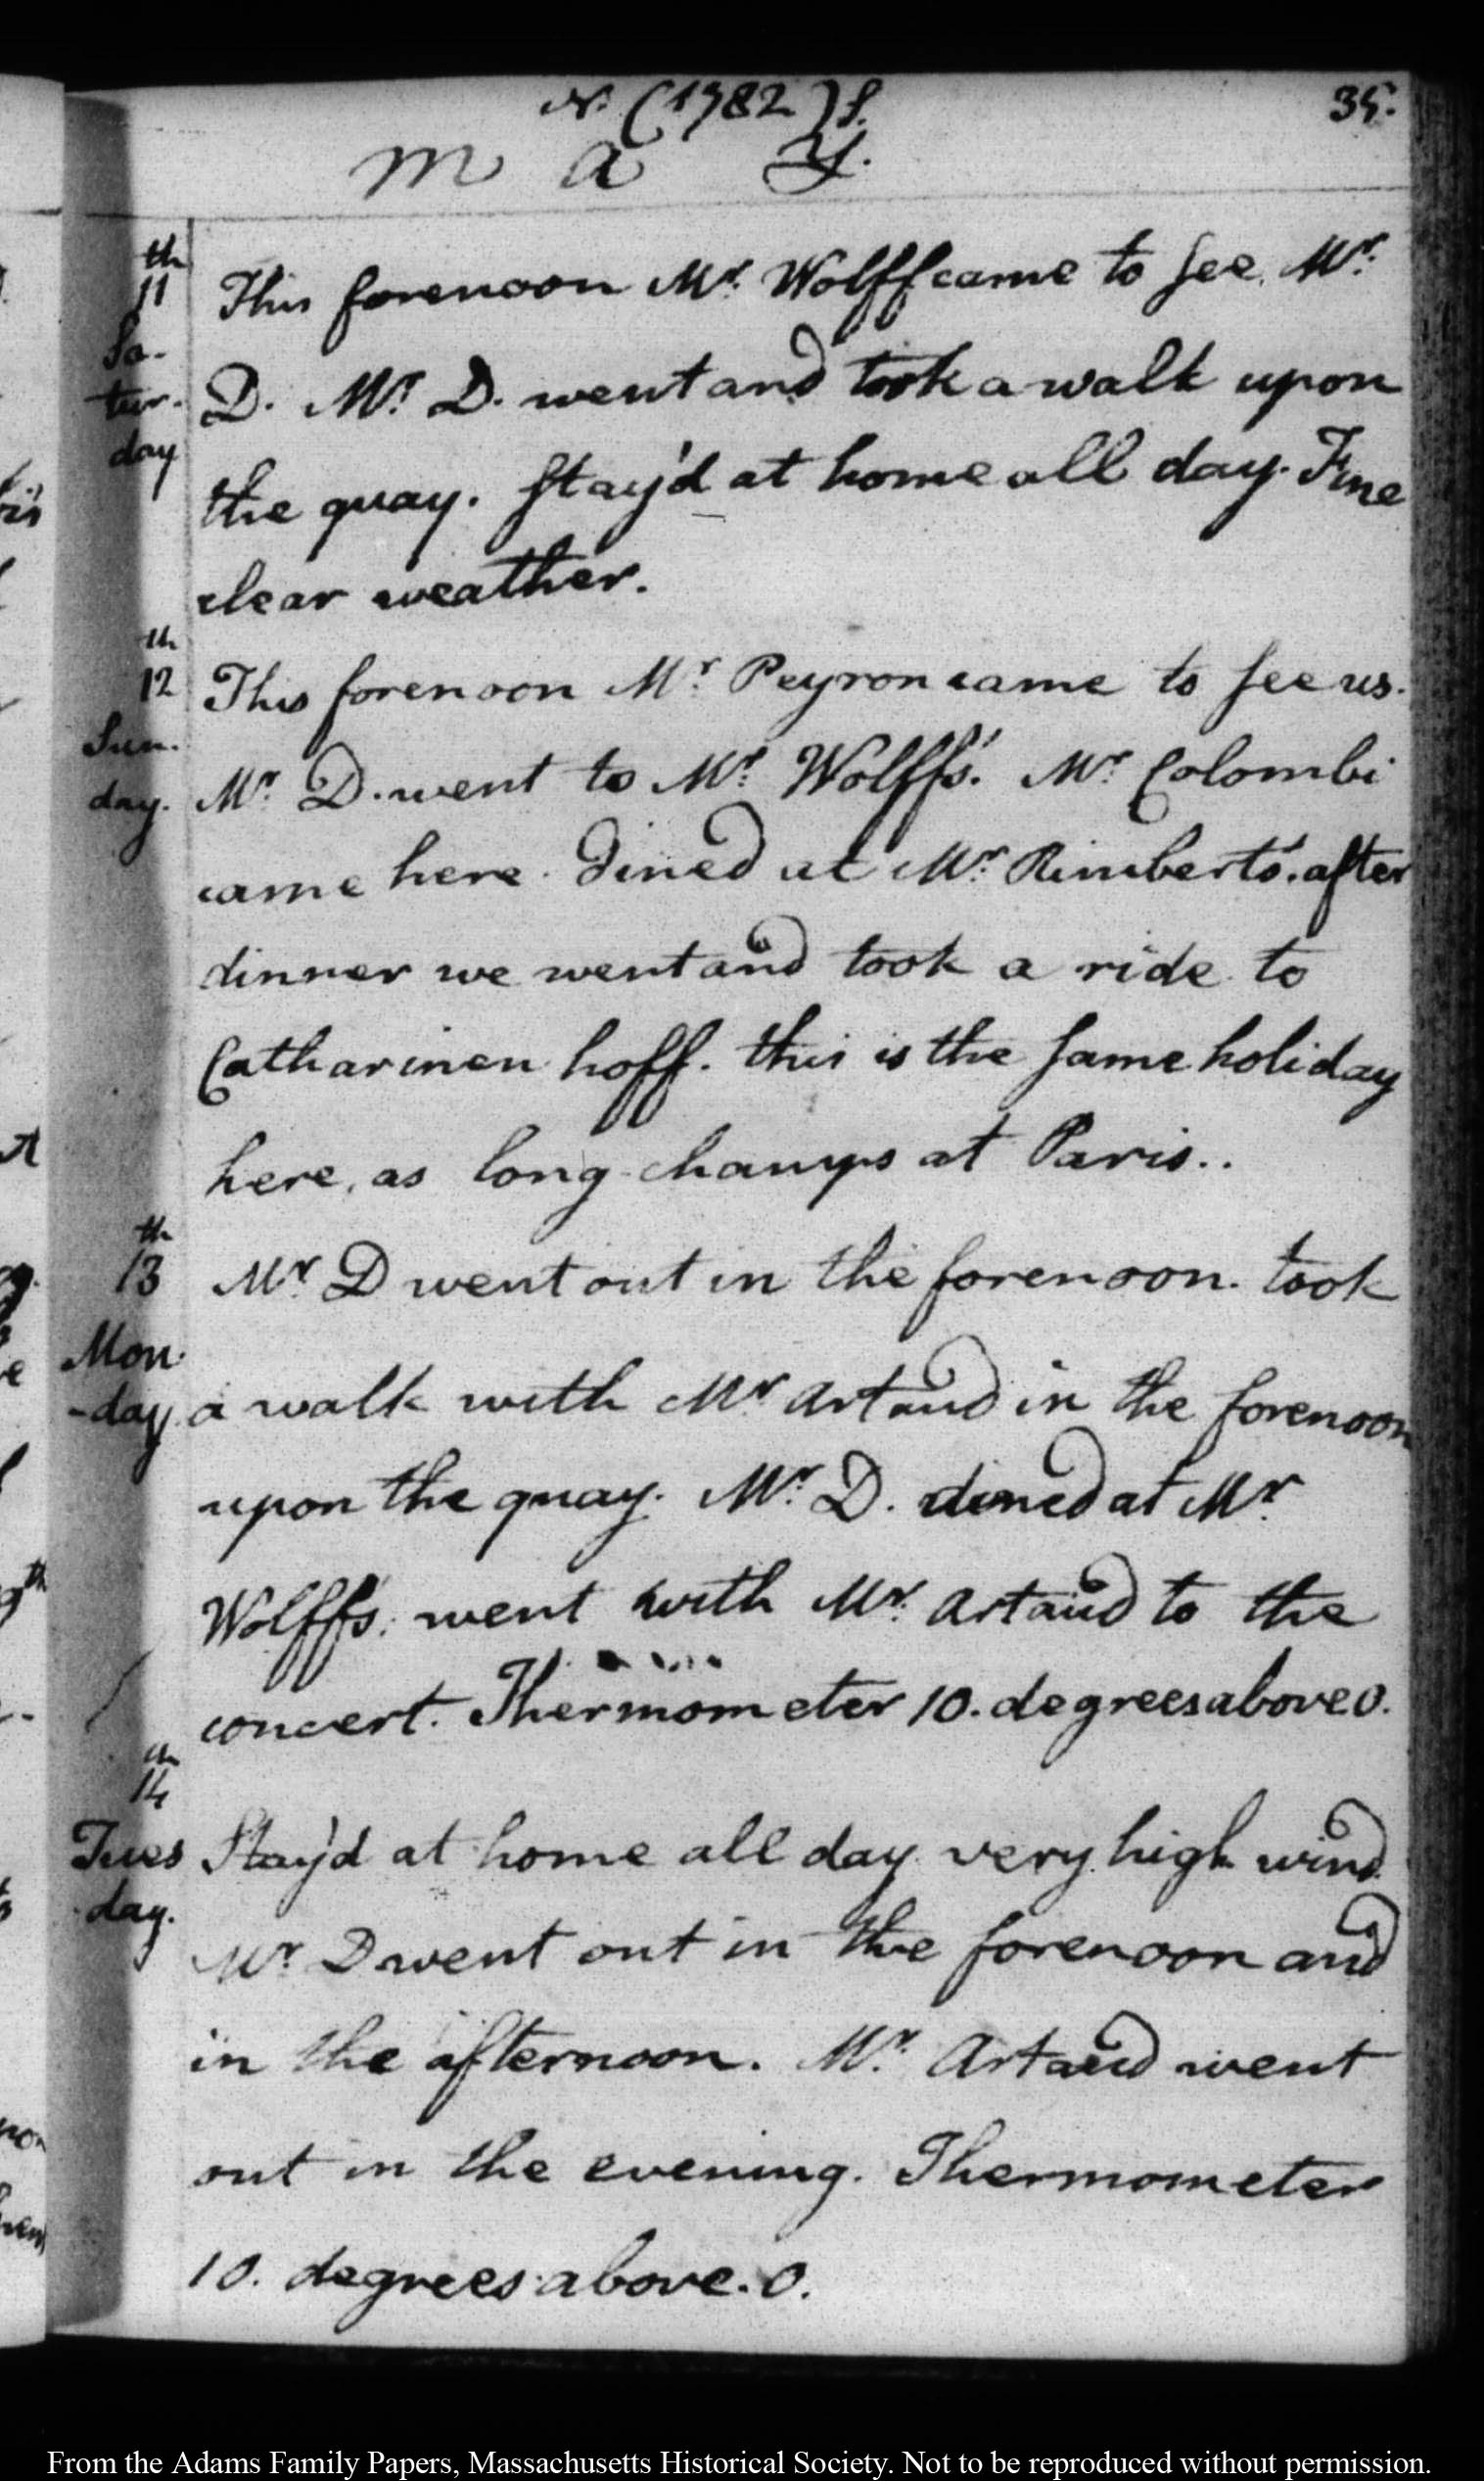 N. (1782) S. 35.
M a y.
th
11 This forenoon Mr. Wolff came to see Mr.
Sa-
tur- D. Mr. D. went and took a walk upon
day
the quay. Stay'd at home all day. Fine
clear weather.
th
12 This forenoon Mr. Peyron came to see us.
Sun-
day. Mr. D. went to Mr. Wolff's. Mr. Colombi
came here. Dined at Mr. Rimbert's. after
dinner we went and took a ride to
Catharinen hoff. this is the same holiday
here, as long-champs at Paris..
th
13 Mr. D went out in the forenoon. took
Mon-
-day a walk with Mr. Artaud in the forenoon
upon the quay. Mr. D. dined at Mr.
Wolff's. went with Mr. Artaud to the
concert. Thermometer 10. degrees above 0.
th
14
Tues Stay'd at home all day very high wind
day.
Mr. D went out in the forenoon and
in the afternoon. Mr. Artaud went
out in the evening. Thermometer
10. degrees above. 0.
From the Adams Family Papers, Massachusetts Historical Society. Not to be reproduced without permission.